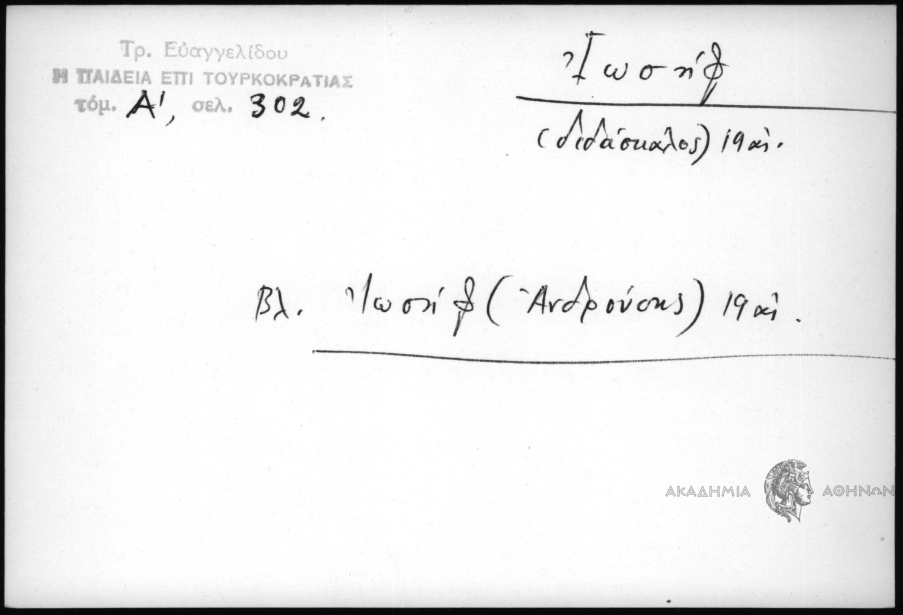 Τρ. Εὐαγγελίδου
Η ΠΑΙΔΕΙΑ ΕΠΙ ΤΟΥΡΚΟΚΡΑΤΙΑΣ
τόμ. Α', σελ. 302.
Ἰωσήφ
(διδάσκαλος) 19 αἰ.
Βλ. Ἰωσήφ (Ἀνδρούσης) 19 αἰ.
ΑΚΑΔΗΜΙΑ ΑΘΗΝΩΝ